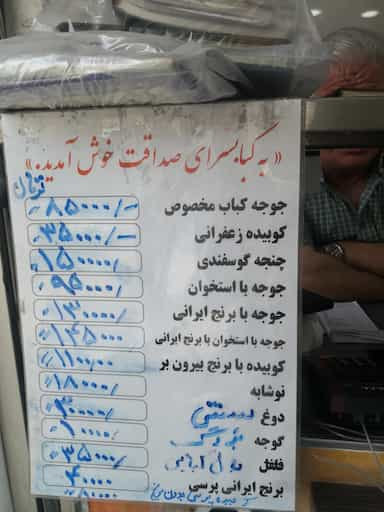 « به کبابسرای صداقت خوش آمدید. »
تومان
جوجه کباب مخصوص ۸۵۰۰۰/-
کوبیده زعفرانی ۳۵۰۰۰/-
چنجه گوسفندی ۱۵۰۰۰۰/
جوجه با استخوان ۹۵۰۰۰/
جوجه با برنج ایرانی ۱۳۰۰۰۰/
جوجه با استخوان با برنج ایرانی ۱۴۵۰۰۰
کوبیده با برنج بیرون بر ۱۱۰۰۰۰
نوشابه ۱۸۰۰۰/
دوغ ۳۰۰۰۰/
گوجه ۱۰۰۰۰/
فلفل ۳۵۰۰۰/
برنج ایرانی پرسی ۴۰۰۰۰